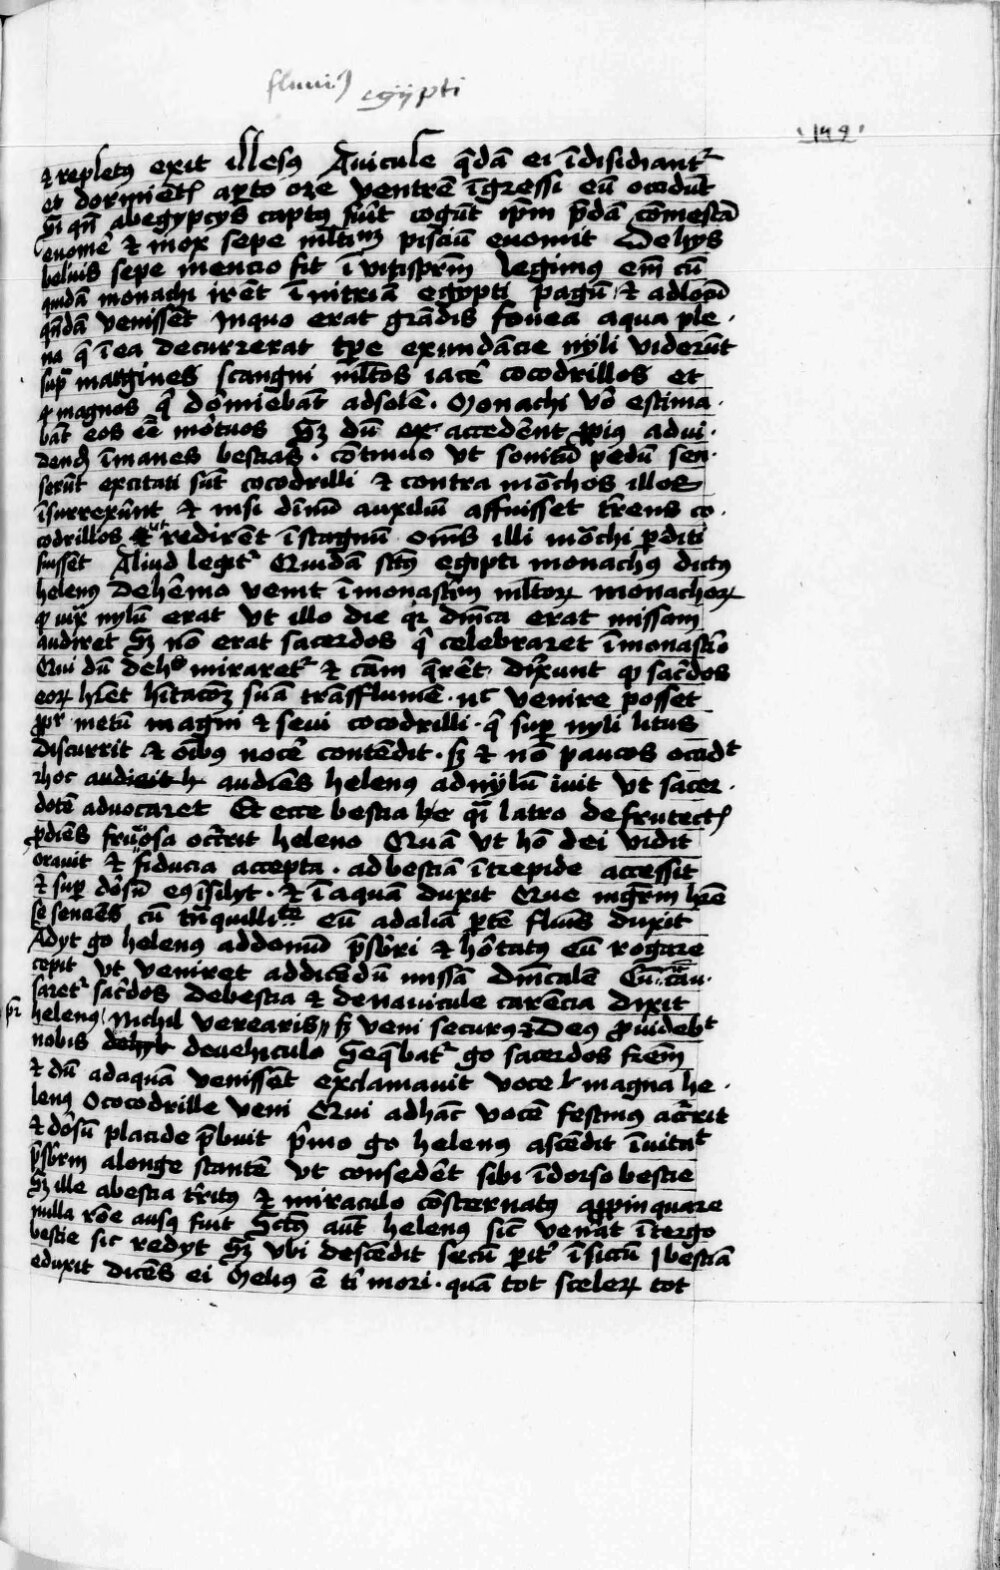 fluui9 egÿpti
149
⁊ repletꝰ exit illesꝰ Auicule q̄dā ei īdisidiant᷑
et dormiētē aꝑto ore ventrē īgressi eū ocidūt
Si qn̄ abegyptÿs captꝰ fūit cogūt ip̄m p̄dā cōmestā
euomē ⁊ mox sepe ml̄tim pisciū euomit De hys
beluis sepe mencio fit ī vitisprm̄ Legimꝰ em̄ cū
quidā monachi irēt ī nitriā egypti pagū ⁊ adlocū
qn̄dā venissēt Inquo erat grādis fouea aqua ple ·
na q̄ īea decurrerat tp̄e exundācie nÿli viderūt
supͣ margines stangni ml̄tos iacē cocodrillos et
ꝑmagnos q̄ dōmiebāt adsolē · Monachi vō estima ·
bāt eos eē mōtuos Sȝ dū ex accedēnt ꝓpiꝰ adui ·
dend īmanes bestias · cōtinuo vt sonitū pedū sen ·
serūt excitati sūt cocodrilli ⁊ contra mōchos illos
īsurrexūnt ⁊ nisi dīnū auxiliū affuisset tr̄ens co ·
codrillos ut redirēt īstagnū oms̄ illi mōchi ꝑditi
fuissēt Aliud legit᷑ Quidā sct̄ꝰ egipti monachꝰ dictꝰ
helenꝰ dehēmo venit ī monast̄m ml̄toꝝ monachoꝝ
ꝙ iuxͣ nylū erat vt illo die qꝛ dm̄ca erat missam
audiret Sȝ nō erat sacerdos q̄ celebraret ī monast̄io
Qui dū dehˢ miraret᷑ ⁊ cām q̄rēt dix̄unt ꝙ sac̄dos
eoꝝ hr̄et hītac̄oȝ suā trāsflumē · nᶜ venire posset
ꝓpt᷑ metū magni ⁊ seui cocodrilli · q̄ suꝑ nyli litus
discurrit ⁊ oībꝰ nocē contēdit · sȝ ⁊ nō paucos ocidᵗ
rhoc audieit h audiēs helenꝰ adnÿlū iuit vt sacer ·
dotē aduocaret Et ecce bestia he qͣi latro de frutectꝭ
ꝓdiēs furiosa oc̄rrit heleno Quā vt hō dei vidit
orauit ⁊ fiducia accepta · adbestiā ītrepide accessit
⁊ suꝑ dōsū eꝰ īsilyt · ⁊ ī aquā duxit Que mgrm̄ hr̄e
se senciēs cū tn̄quillite eū adaliā ꝑtē fluuīs duxit
Adyt go helenꝰ addomū p̄sbr̄i ⁊ hōtatꝰ eū rogare
cepit vt veniret addicēdū missā dm̄calē Cū cāu ·
saret᷑ sac̄dos debestia ⁊ denauicule carēcia dixit
helenꝰ Nichil verearis sȝ veni securꝰ ⁊ Deꝰ ꝓuidebᵗ
nobis dehyb deuehiculo Seq̄bat᷑ go sacerdos frēm̄
⁊ dū adaquā venissēt exclamauit voce magna he ·
lenꝰ Ococodrille veni Qui adhāc vocē festinꝰ ac̄rrit
⁊ dōsū placide p̄buit p̄mo go helenꝰ ascēdit īuitaᵗ
p̄sbr̄m alonge stantē vt consedēt sibi īdorso bestie
Sȝ ille abestia tr̄ritꝰ ⁊ miraculo cōsternatꝰ aꝓpinquare
nulla rōe ausꝰ fuit Sct̄ꝰ aūt helenꝰ sic̄ venat ītergo
bestie sic redyt Sȝ vbi descēdit secū ꝑit᷑ īsiccū bestiā
eduxit dicēs ei Meliꝰ ē tī mori · quā tot sceleꝝ tot